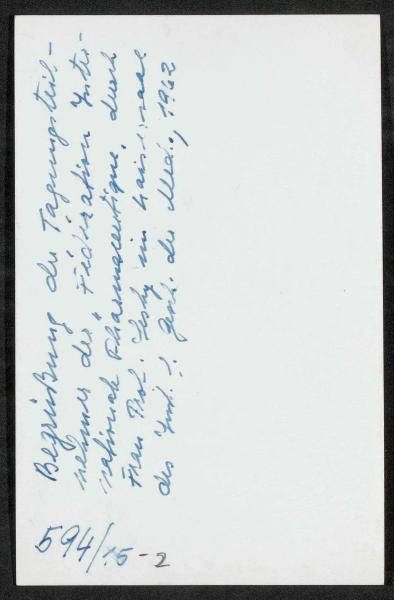 Begrüßung der Tagungsteil-
nehmer der „Fédération Inter-
nationale Pharmaceutique, durch
Frau Prof. Lesky im Kaisersaal
des Inst. f. Gesch. der Med., 1962
594/15-2